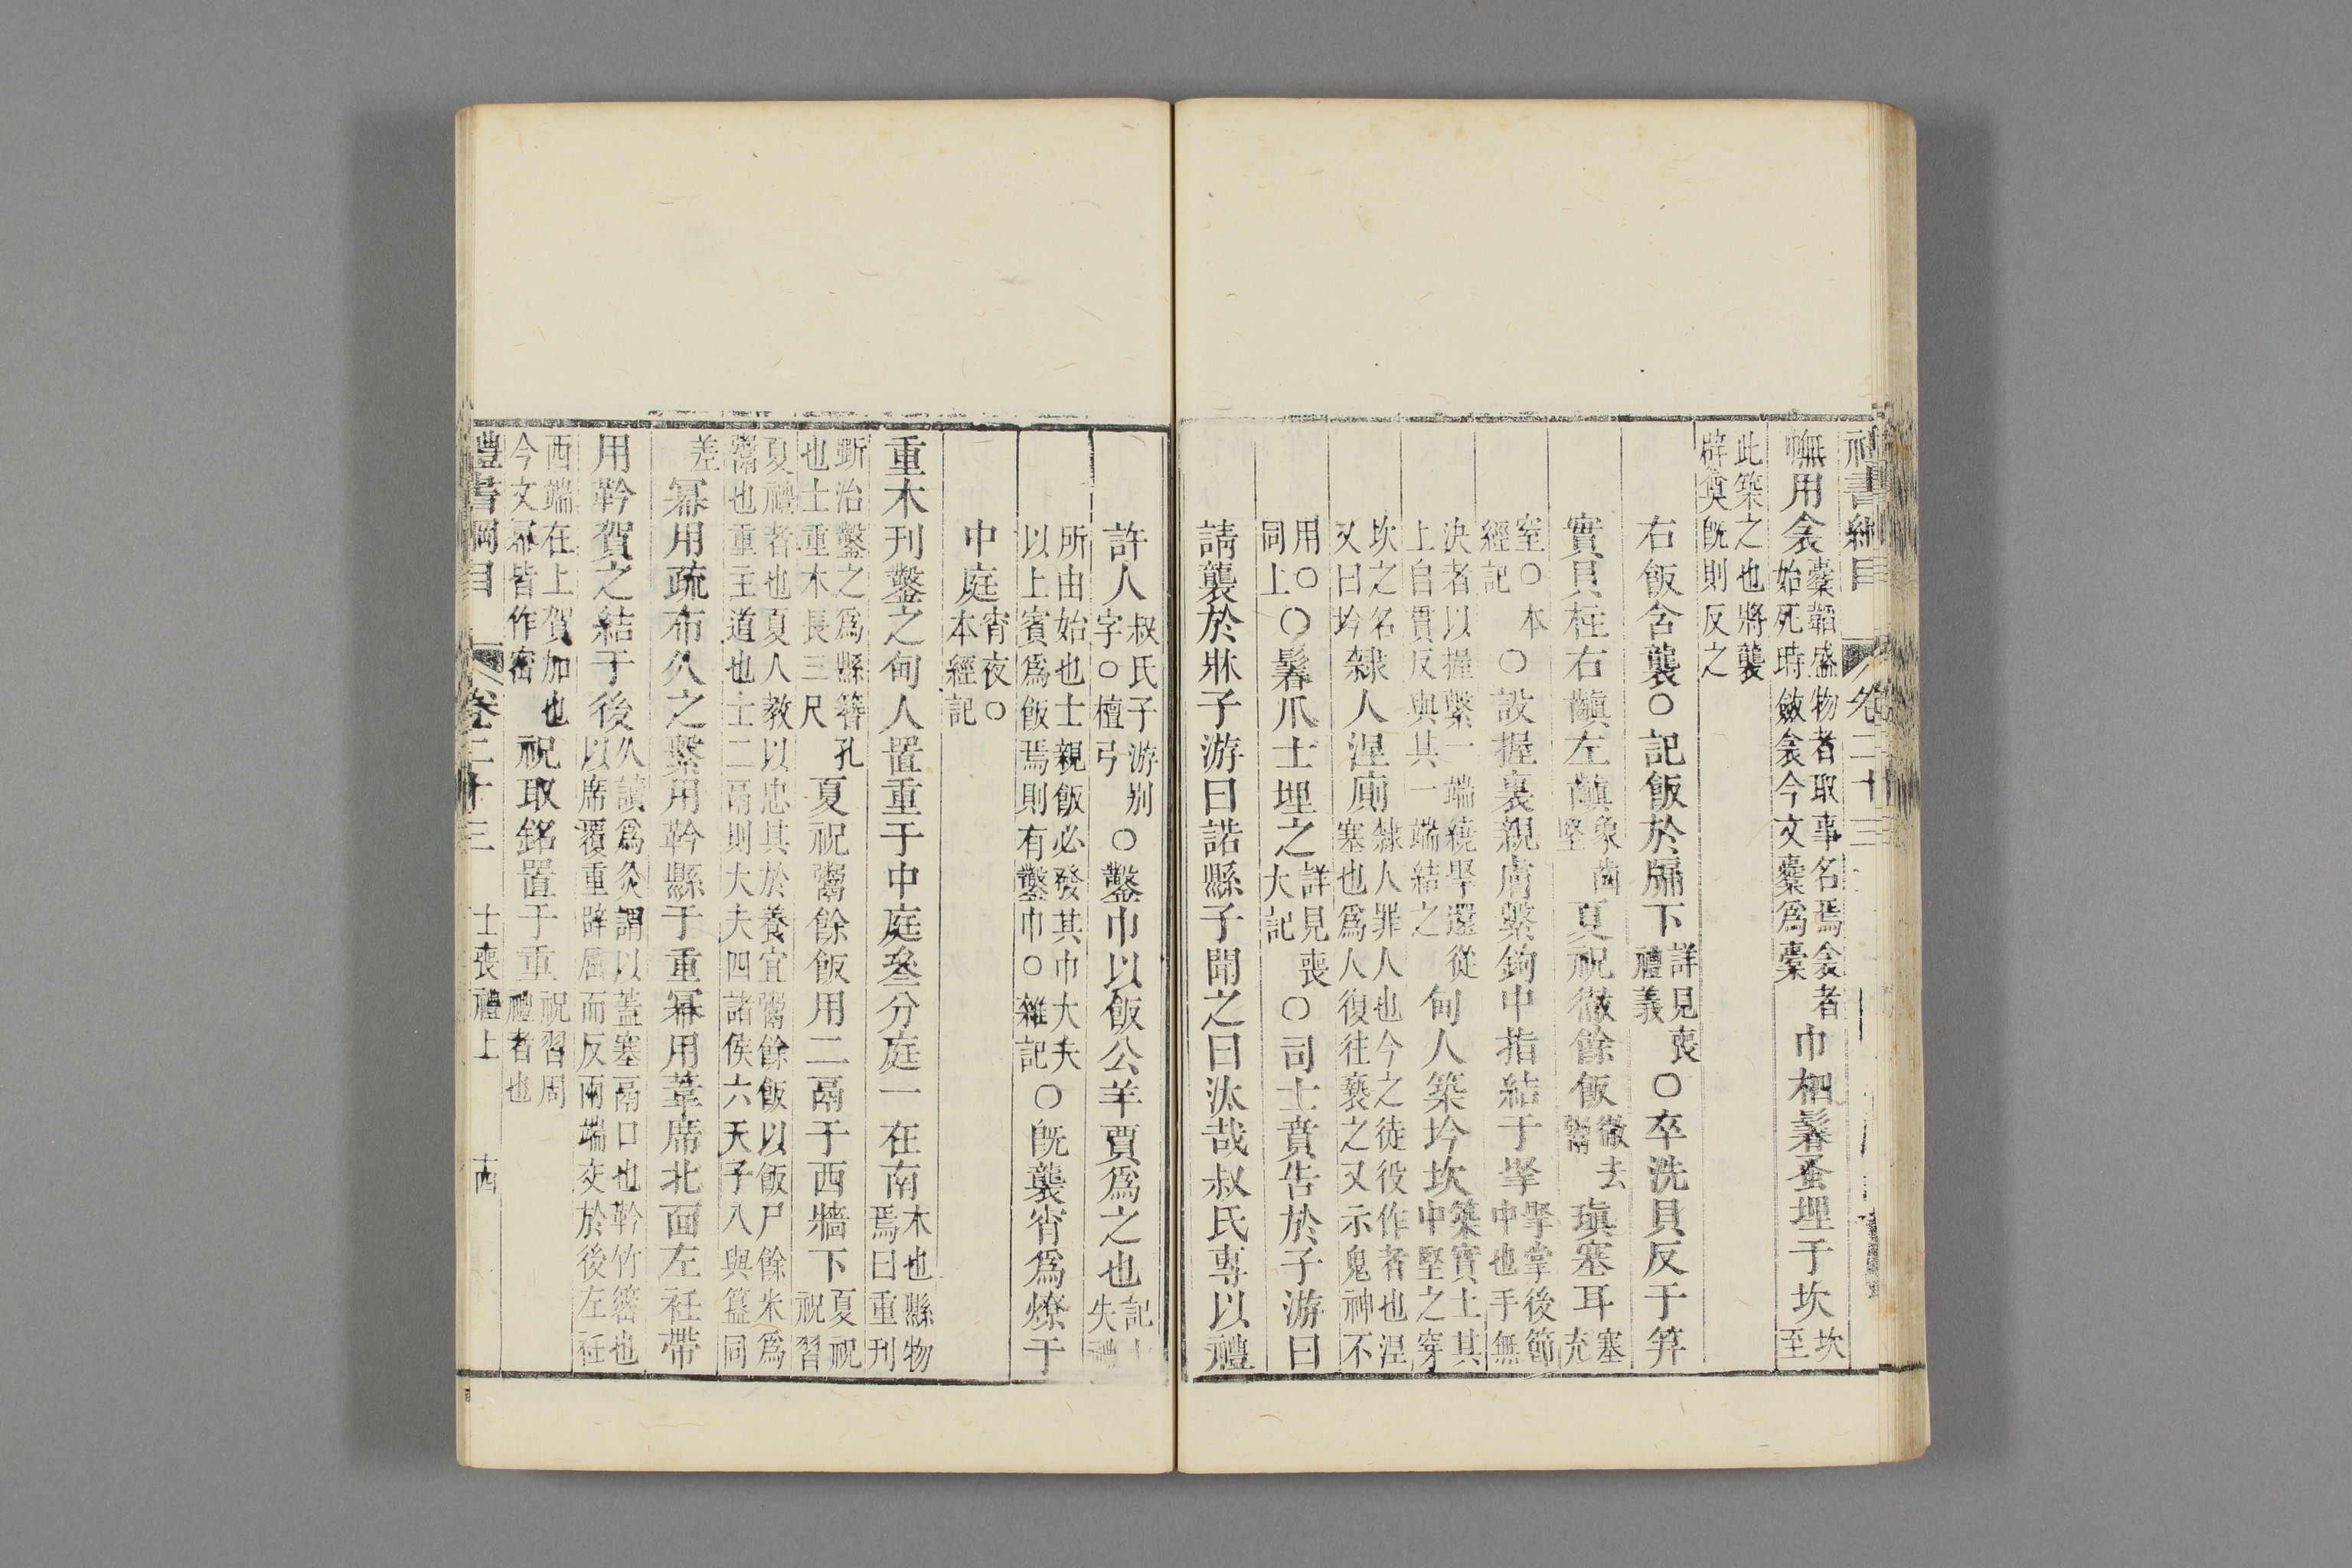 禮書綱目 卷二十三
幠用衾橐韜盛物者取事名焉衾者始死時斂衾今文橐爲櫜巾柶鬊蚤埋于坎坎至
此築之也將襲辟奠旣則反之
右飯含襲○記飯於牖下詳見喪禮義○卒洗貝反于笲
實貝柱右齻左齻象齒堅夏祝徹餘飯徹去鬻瑱塞耳塞充
窒○本經記○設握裏親膚繫鉤中指結于掔掔掌後節中也手無
決者以握繫一端繞掔還從上自貫反與其一端結之甸人築坅坎築實土其中堅之穿
坎之名又曰坅隸人涅廁隸人罪人也今之徒役作者也涅塞也爲人復往褻之又示鬼神不
用○同上○鬊爪士埋之詳見喪大記○司士賁告於子游曰
請襲於牀子游曰諾縣子聞之曰汰哉叔氏專以禮
許人叔氏子游别字○檀弓○鑿巾以飯公羊賈爲之也記士失禮
所由始也士親飯必發其巾大夫以上賓爲飯焉則有鑿巾○雜記○旣襲宵爲燎于
中庭宵夜○本經記
重木刊鑿之甸人置重于中庭叁分庭一在南木也縣物焉曰重刊
斲治鑿之爲縣簪孔也士重木長三尺夏祝鬻餘飯用二鬲于西牆下夏祝祝習
夏禮者也夏人教以忠其於養宜鬻餘飯以飯尸餘米爲鬻也重主道也士二鬲則大夫四諸侯六天子八與簋同
差冪用疏布久之繫用靲縣于重冪用葦席北面左衽帶
用靲賀之結于後久讀爲灸謂以蓋塞鬲口也靲竹𥯤也以席覆重辟屈而反兩端交於後左衽
西端在上賀加也今文冪皆作密祝取銘置于重祝習周禮者也
禮書綱目 卷二十三 士喪禮上